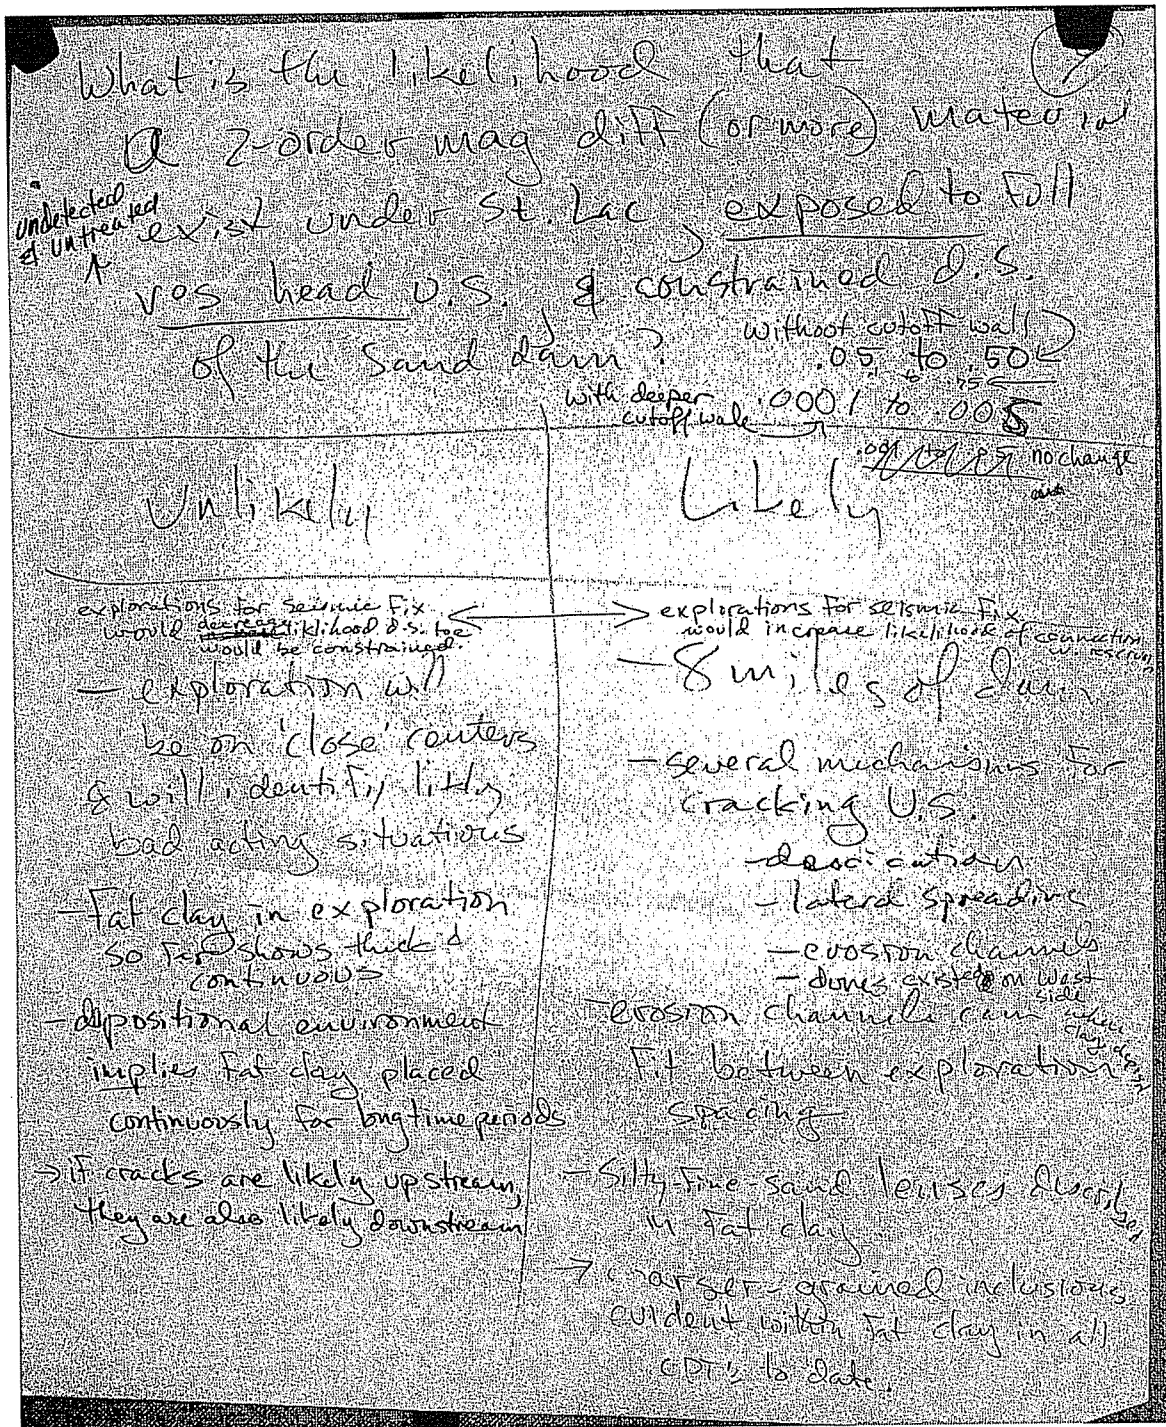 What is the likelihood that
a 2-order mag diff (or more) material
undetected
& untreated
exist under St. Lac, exposed to full
res head U.S. & constrained d.S.
of the Sand dam?
without cutoff wall
.05 to .50
.1 to .75
with deeper
cutoff wall
.0001 to .005
no change
Unlikely
explorations for seismic fix
would decrease liklihood d.s. toe
would be constrained.
— exploration will
be on 'close' centers
& will identify
bad acting situations
— Fat clay in exploration
so far shows thick &
continuous
— depositional environment
implies fat clay placed
continuously for long time periods
→ if cracks are likely upstream,
they are also likely downstream
Likely
explorations for seismic fix
would increase likelihood of connection
w reservoir
— 8 miles of dam
— several mechanisms for
cracking U.S.
— desiccation
— lateral spreading
— erosion channels
— dunes exist on west
side
when
clay deposit
— erosion channels can
fit between exploration
spacing
— Silty-fine-sand lenses described
in fat clay
→ coarser-grained inclusions
evident within fat clay in all
CPT's to date.